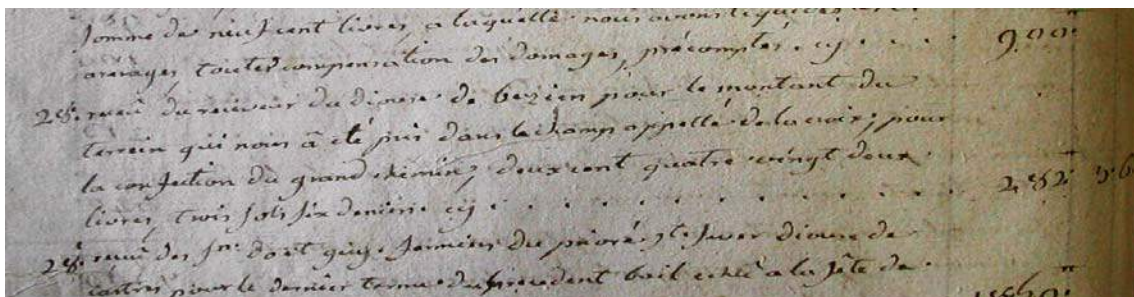 somme de neuf cent livres, a laquelle nous avons liquidé
arerages, toutes compensation des domages, précomptes. cy . . . . 900#
28. receu du receveur du diocese de bezien pour le montant du
terrein qui nous à été pris dans le champ appellé de la croix, pour
la confection du grand chemin, deux cent quatre vingt deux
livres, trois sols six deniers. cy . . . . . . . . . . 282# 3. 6
28. receu des Srs. dort guy. fermiers du prioré St. diocese de
castres pour le dernier terme du precedent bail echû a la fête de